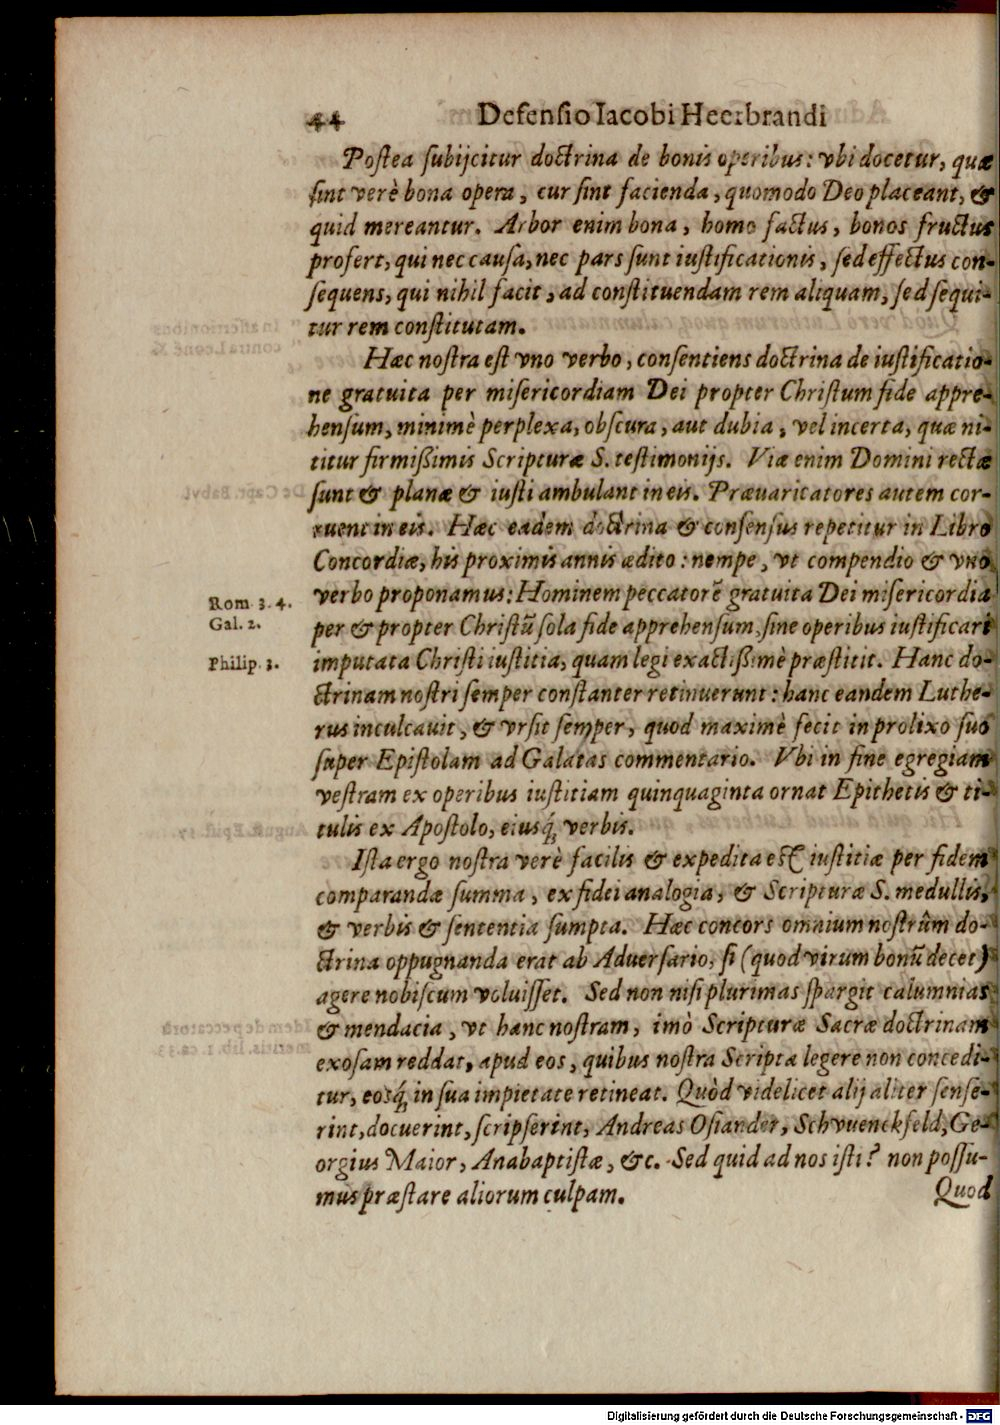 44 Defensio Iacobi Heerbrandi
Postea subijcitur doctrina de bonis operibus: vbi docetur, quæ
sint verè bona opera, cur sint facienda, quomodo Deo placeant, &
quid mereantur. Arbor enim bona, homo factus, bonos fructus
profert, qui nec causa, nec pars sunt iustificationis, sed effectus con-
sequens, qui nihil facit, ad constituendam rem aliquam, sed sequi-
tur rem constitutam.
Hæc nostra est vno verbo, consentiens doctrina de iustificatio-
ne gratuita per misericordiam Dei propter Christum fide appre-
hensum, minimè perplexa, obscura, aut dubia, vel incerta, quæ ni-
titur firmißimis Scripturæ S. testimonijs. Viæ enim Domini rectæ
sunt & planæ & iusti ambulant in eis. Præuaricatores autem cor-
ruent in eis. Hæc eadem doctrina & consensus repetitur in Libro
Concordiæ, his proximis annis ædito: nempe, vt compendio & vno
verbo proponamus: Hominem peccatorẽ gratuita Dei misericordia
Rom. 3. 4.
Gal. 2.
per & propter Christũ sola fide apprehensum, sine operibus iustificari
Philip. 3.
imputata Christi iustitia, quam legi exactißimè præstitit. Hanc do-
ctrinam nostri semper constanter retinuerunt: hanc eandem Luthe-
rus inculcauit, & vrsit semper, quod maximè fecit in prolixo suo
super Epistolam ad Galatas commentario. Vbi in fine egregiam
vestram ex operibus iustitiam quinquaginta ornat Epithetis & ti-
tulis ex Apostolo, eiusq́; verbis.
Ista ergo nostra verè facilis & expedita est iustitiæ per fidem
comparandæ summa, ex fidei analogia, & Scripturæ S. medullis,
& verbis & sententia sumpta. Hæc concors omnium nostrûm do-
ctrina oppugnanda erat ab Aduersario, si (quod virum bonũ decet)
agere nobiscum voluisset. Sed non nisi plurimas spargit calumnias
& mendacia, vt hanc nostram, imò Scripturæ Sacræ doctrinam
exosam reddat, apud eos, quibus nostra Scripta legere non concedi-
tur, eosq́; in sua impietate retineat. Quòd videlicet alij aliter sense-
rint, docuerint, scripserint, Andreas Osiander, Schvuenckfeld, Ge-
orgius Maior, Anabaptistæ, &c. Sed quid ad nos isti? non possu-
mus præstare aliorum culpam.
Quod
Digitalisierung gefördert durch die Deutsche Forschungsgemeinschaft - DFG